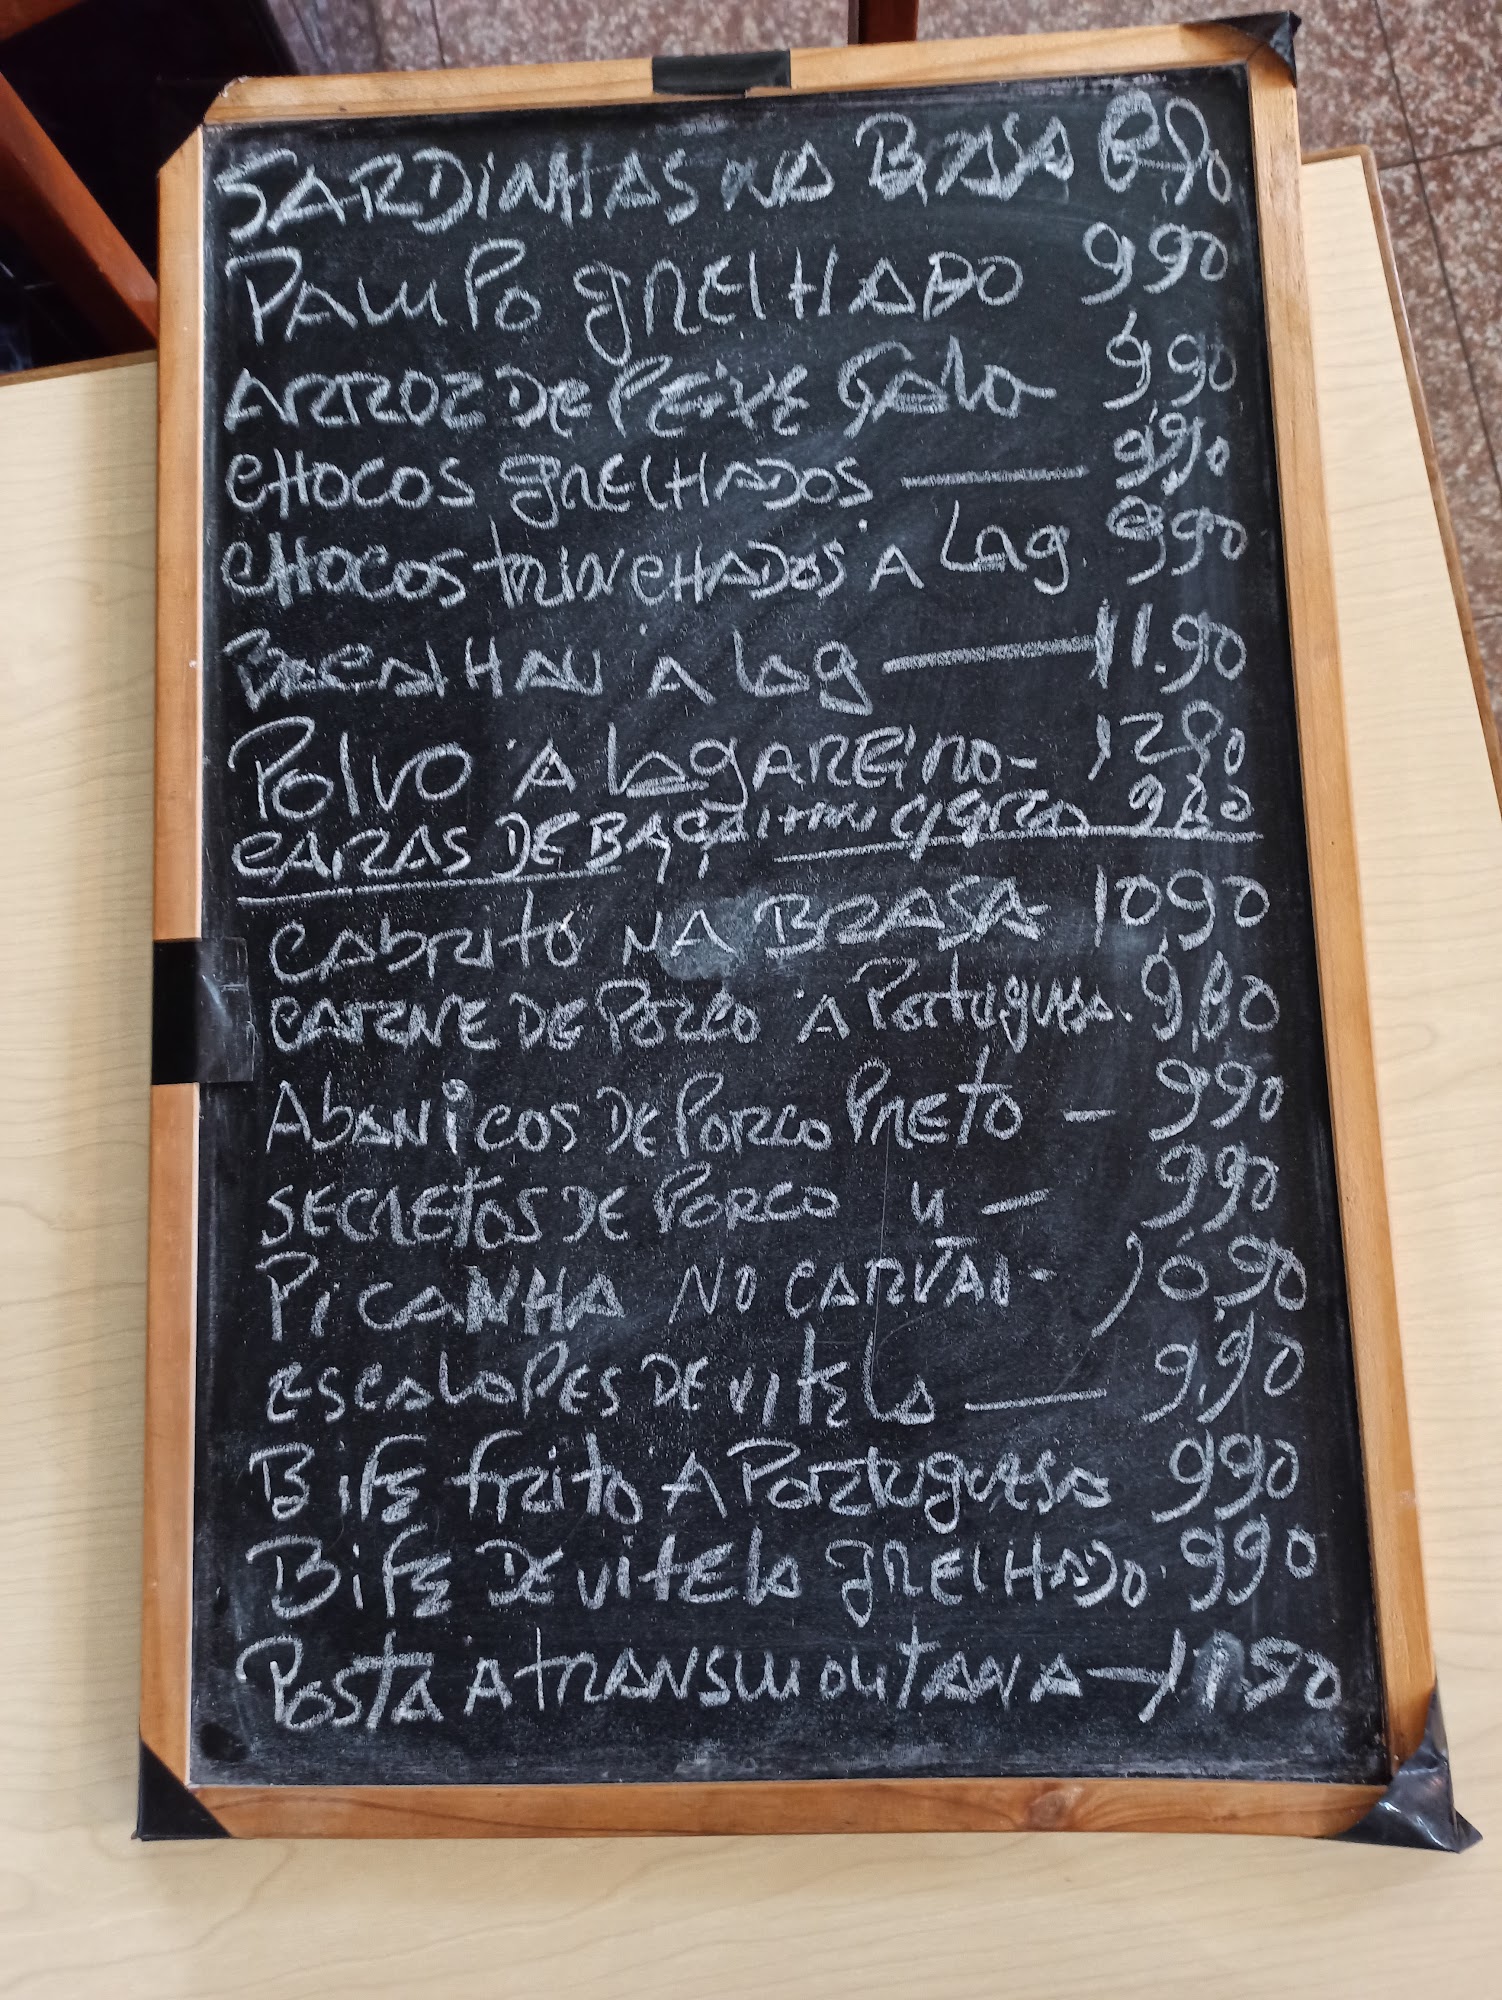 SARDINHAS NA BRASA 8.90
PAMPO GRELHADO 990
ARROZ DE PEIXE GALO 990
CHOCOS GRELHADOS — 990
CHOCOS TRINCHADOS À LAG. 990
BACALHAU À LAG — 11.90
POLVO À LAGAREIRO - 1290
CARAS DE BACALHAU 9.80
CABRITO NA BRASA - 1090
CARNE DE PORCO À PORTUGUESA. 9,80
ABANICOS DE PORCO PRETO - 990
SECRETOS DE PORCO 4 — 990
PICANHA NO CARVÃO - 10,90
ESCALOPES DE VITELA — 9.90
BIFE FRITO A PORTUGUESA 990
BIFE DE VITELA GRELHADO. 990
POSTA A TRANSMONTANA — 11.90